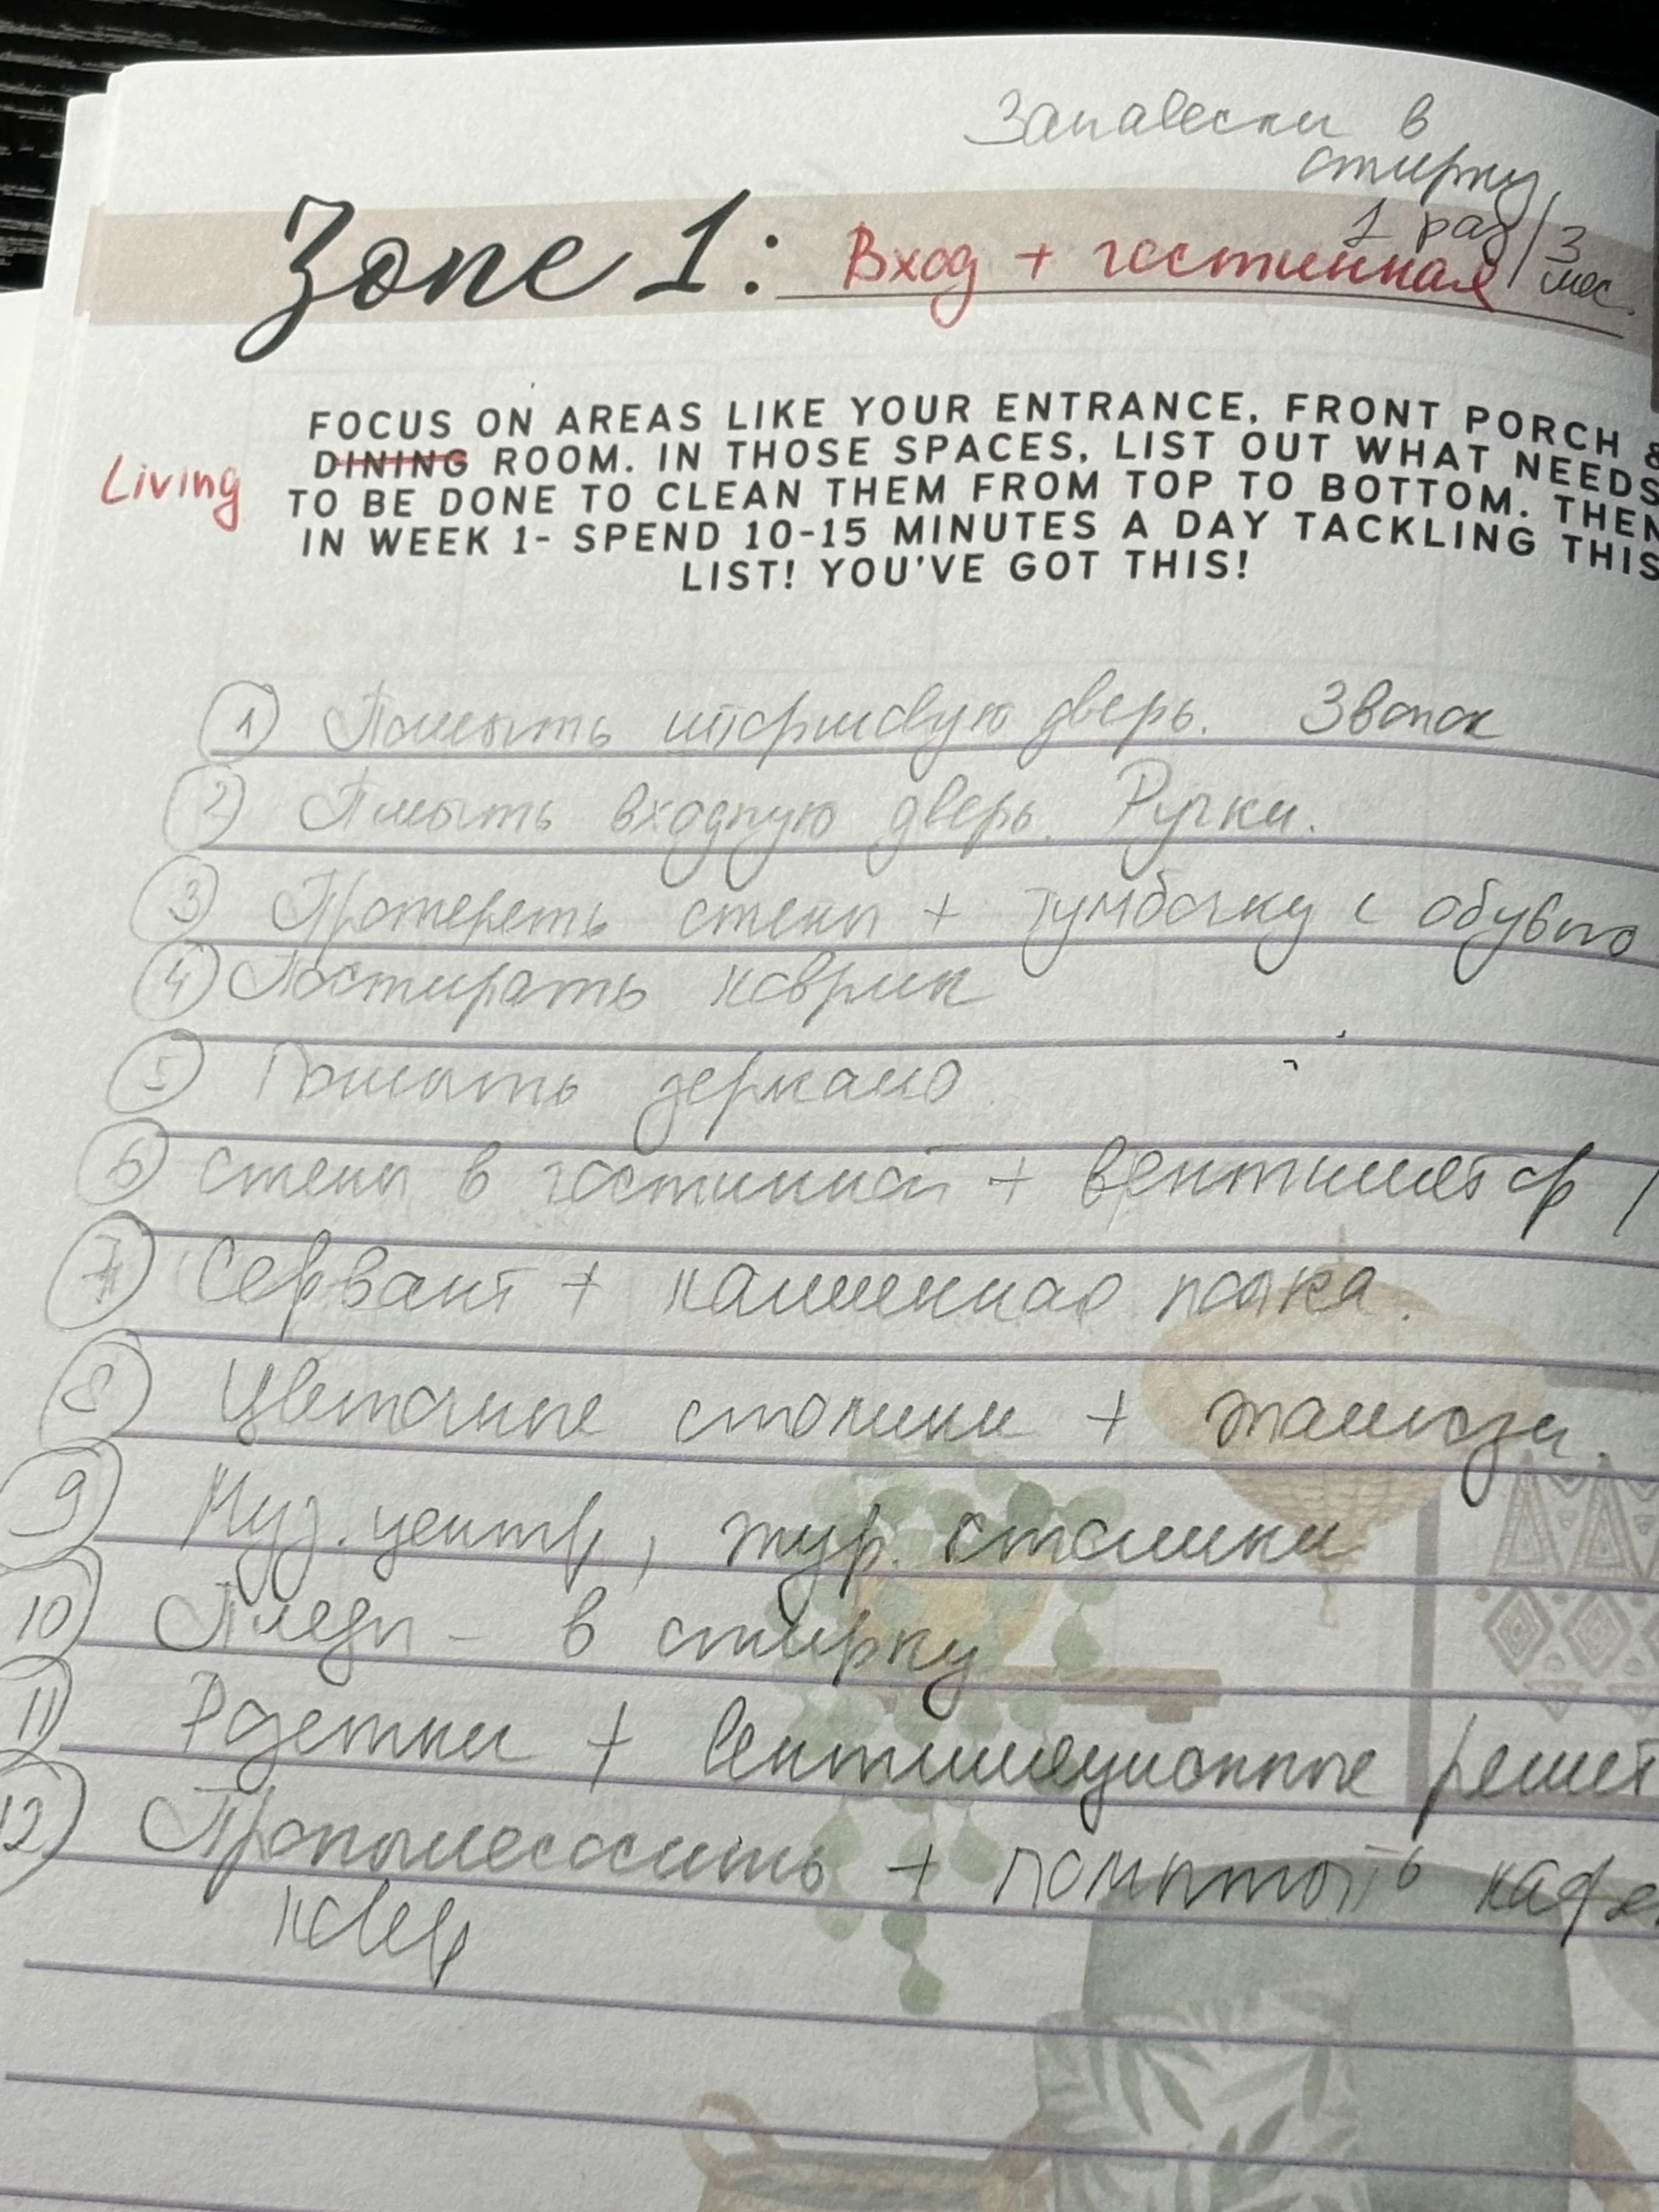 Занавески в
стирку
1 раз/3
мес.
Zone 1: Вход + гостинная
FOCUS ON AREAS LIKE YOUR ENTRANCE, FRONT PORCH &
Living DINING ROOM. IN THOSE SPACES, LIST OUT WHAT NEEDS
TO BE DONE TO CLEAN THEM FROM TOP TO BOTTOM. THEN
IN WEEK 1- SPEND 10-15 MINUTES A DAY TACKLING THIS
LIST! YOU'VE GOT THIS!
1 Помыть штормовую дверь. Звонок
2 Пмыть входную дверь. Ручки.
3 Протереть стены + тумбочку с обувью
4 Постирать коврик
5 Помыть зеркало.
6 Стены в гостинной + вентилятор /
7 Сервант + каменная полка.
8 Цветочные столики + жалюзи.
9 Муз. центр, жур. столики
10 Пледы - в стирку
11 Розетки + вентиляционные решет
12 Пропылесосить + кафе
ковер